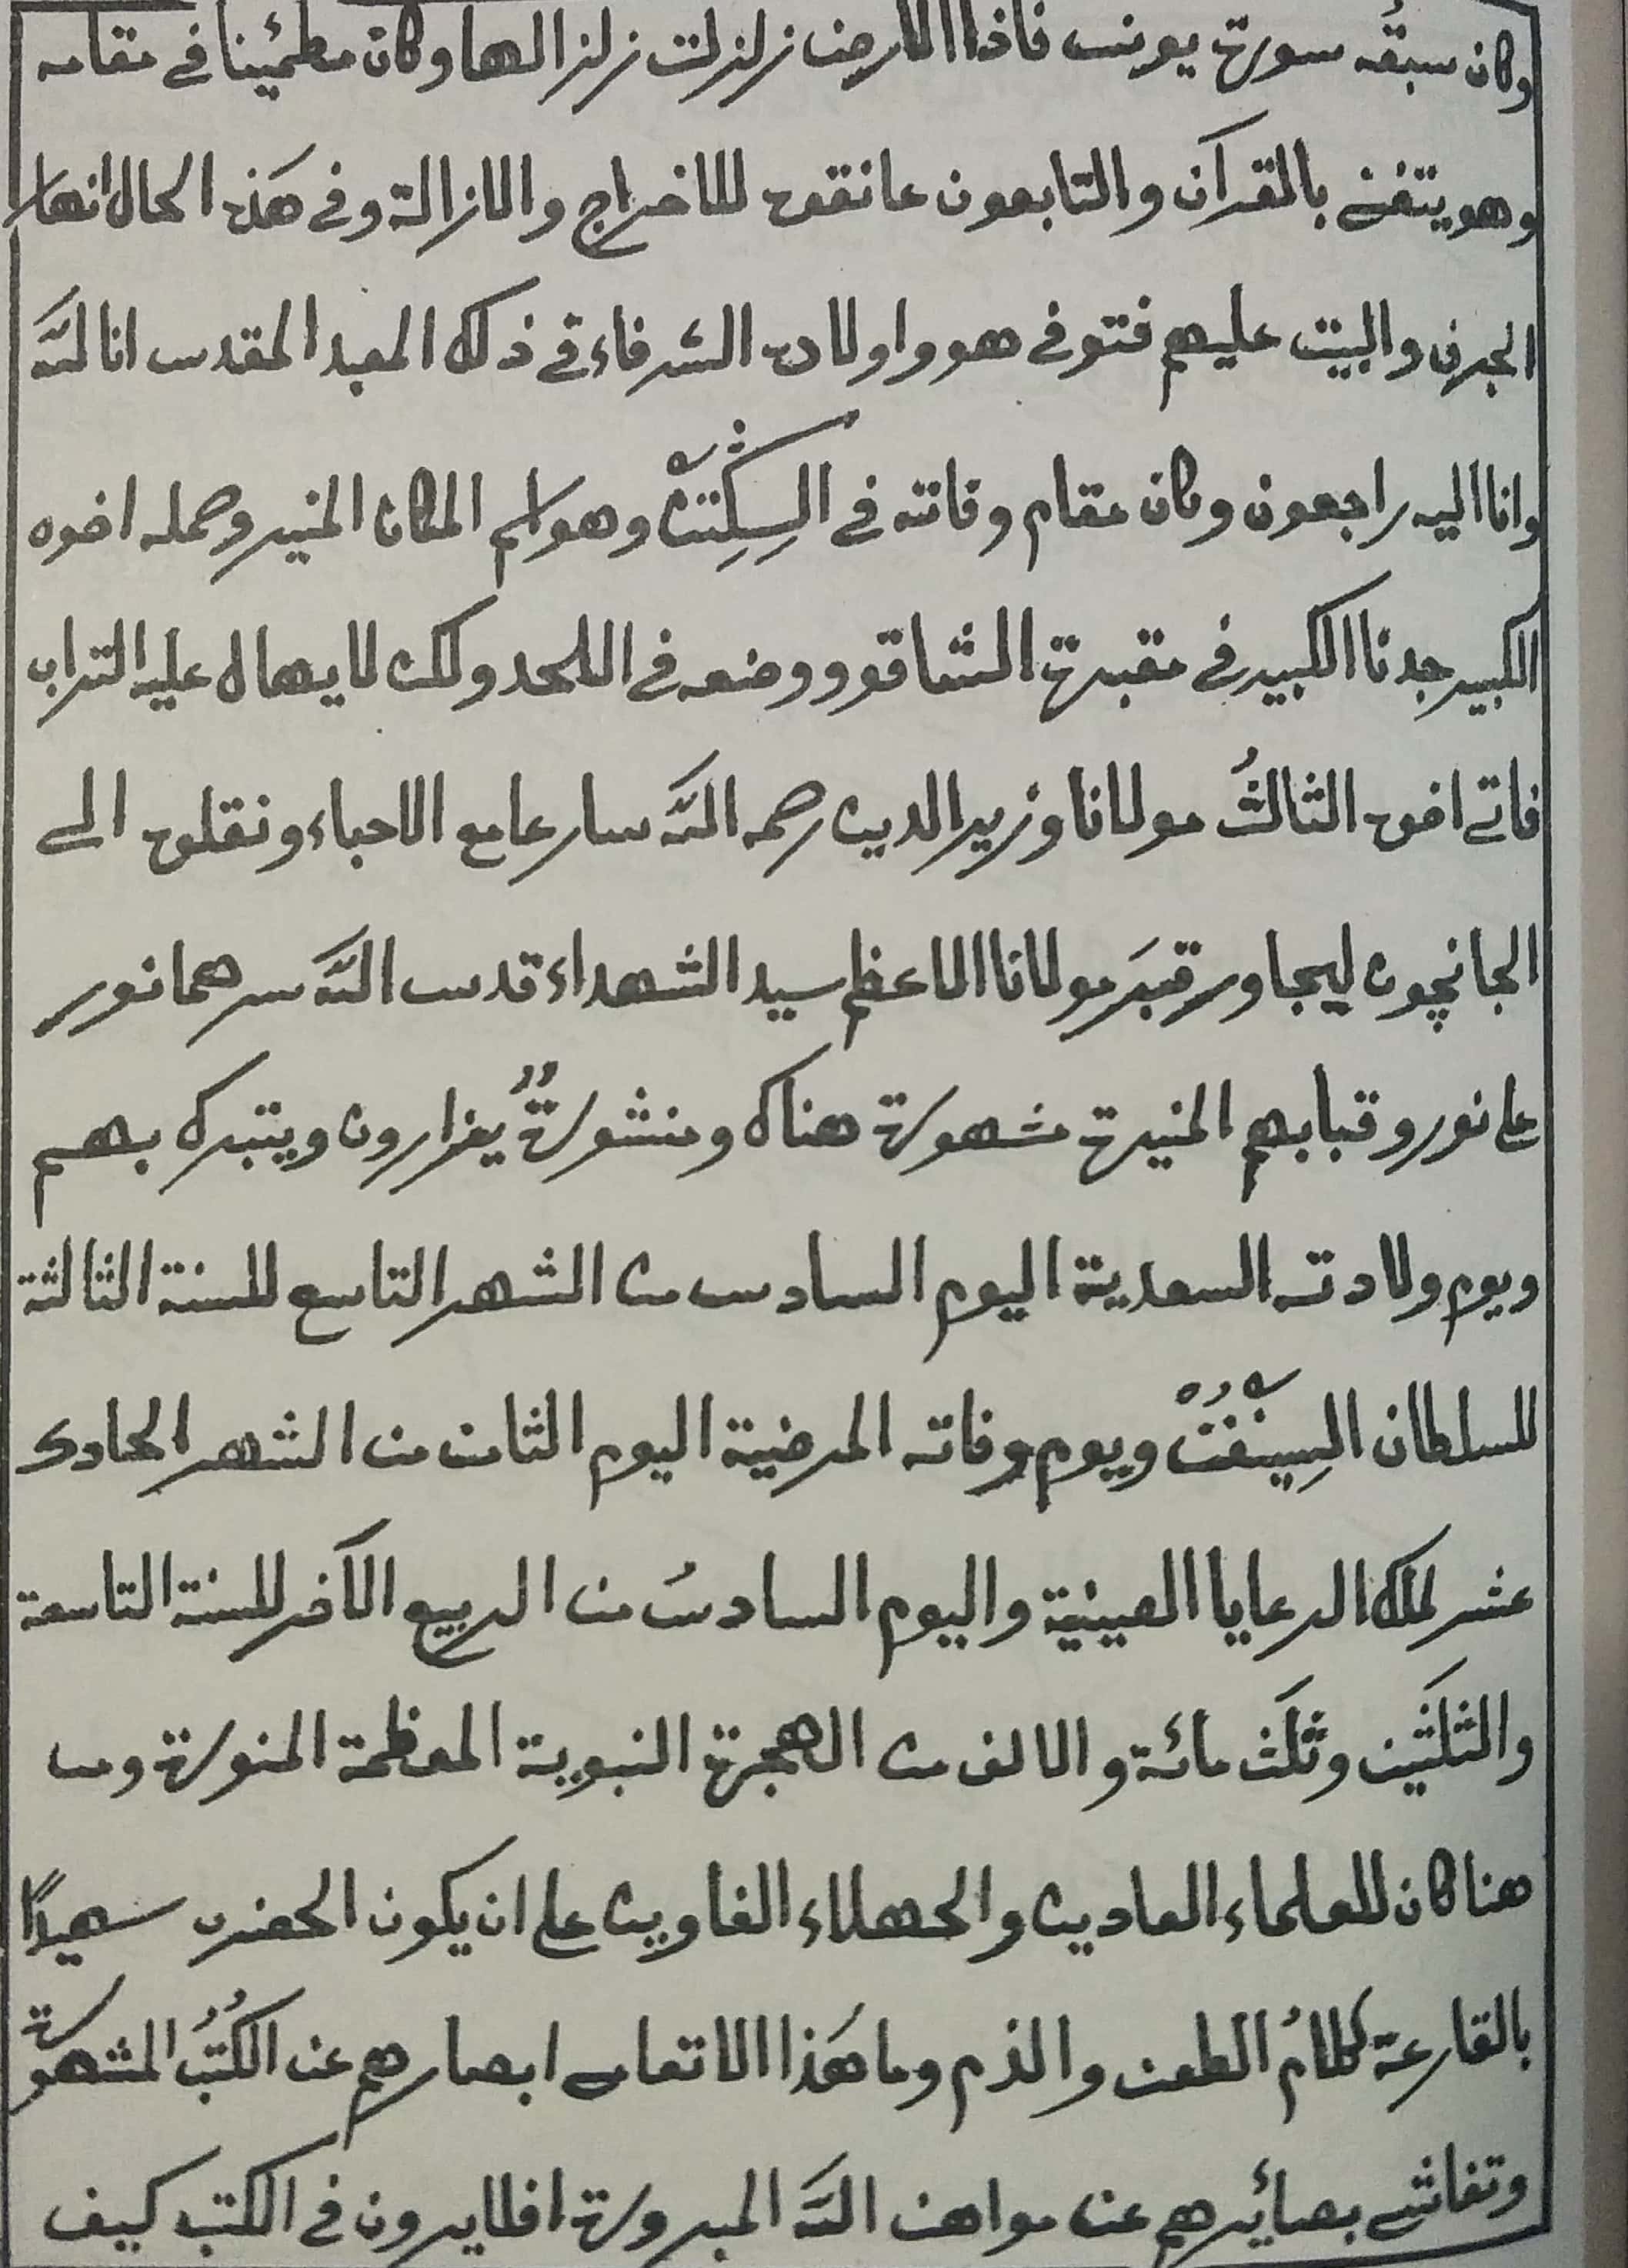 وكان سبقُه سورة يونس فاذا الارض زلزلت زلزالها وكان مطمئينا في مقامه
وهو يتغنے بالقرآن والتابعون عانقوه للاخراج والازالة وفى هَذه الحال انهار
الجرف والبيت عليهم فتوفى هو واولاده الشرفاء في ذلك المعبد المقدس انا للَّه
وانا اليه راجعون وكان مقام وفاته في السِكِتِث وهو اسم المكان المنير وحمله اخوه
الكبير جدنا الكبير فى مقبرة الشاقوو ووضعه في اللحد ولكن لا يهال عليه التراب
فاتے اخوه الثالثُ مولانا وزير الدين رحمه اللَّه سارعا مع الاحباء ونقلوه الے
الجانچون ليجاور قبَر مولانا الاعظم سيد الشهداء قدس اللَّه سرهما نور
عا نور وقبابهم المنيرة مشهورة هناك ومنشورةٌ يزارون ويتبرك بهم
ويوم ولادته السعدية اليوم السادس من الشهر التاسع للسنة الثالثة
للسلطان السِينْفُتْ ويوم وفاته المرضية اليوم الثامن من الشهر الحادى
عشر لملك الرعايا الصينية واليوم السادسُ من الربيع الآخر للسنة التاسعة
والثلَثين وثلَث مائة والالف من الهجرة النبوية المعظمة المنورة ومن
هنا كان للعلماء العادين والجهلاء الغاوين على ان يكون الحضرت سهيدًا
بالقارعة كلامُ الطعن والذم وما هَذا الا تعامے ابصارهم عن الكُتُب المشهورة
وتغاشے بصائرهم عن مواهب اللَّه المبرورة افلا يرون فى الكتب كيف